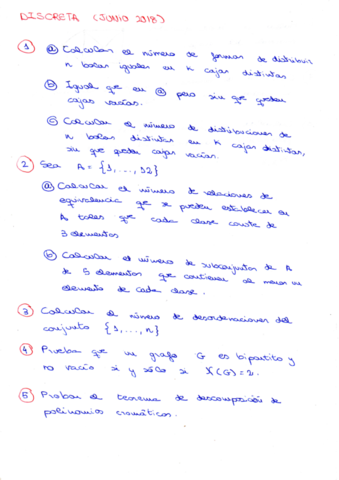 DISCRETA (JUNIO 2018)
① ⓐ Calcular el número de formas de distribuir
n bolas iguales en K cajas distintas
ⓑ Igual que en ⓐ pero sin que queden
cajas vacías.
ⓒ Calcular el número de distribuciones de
n bolas distintas en K cajas distintas,
sin que queden cajas vacías.
② Sea A = {1, ..., 32}
ⓐ Calcular el número de relaciones de
equivalencia que se pueden establecer en
A tales que cada clase conste de
3 elementos
ⓑ Calcular el número de subconjuntos de A
de 5 elementos que contienen al menos un
elemento de cada clase.
③ Calcular el número de desordenaciones del
conjunto {1, ..., n}
④ Prueba que un grafo G es bipartito y
no vacío si y sólo si X(G)=2.
⑤ Probar el teorema de descomposición de
polinomios cromáticos.